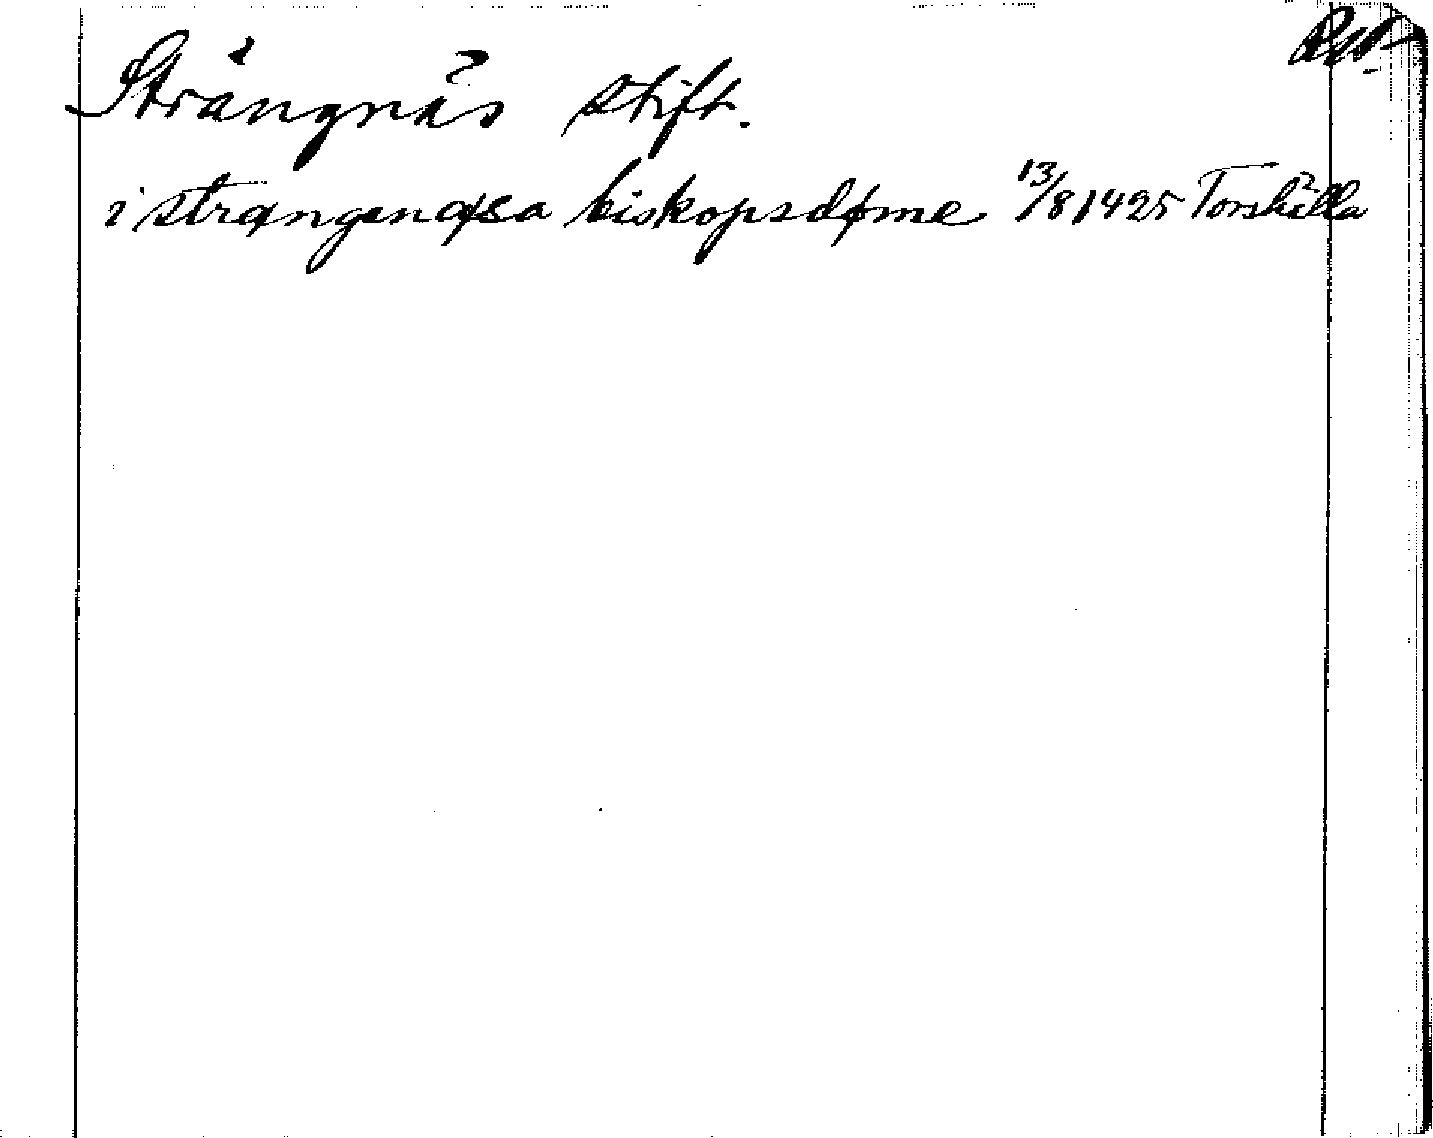 Strängnäs stift.
i strængenæsa biskopsdøme 13/8 1425 Torshälla